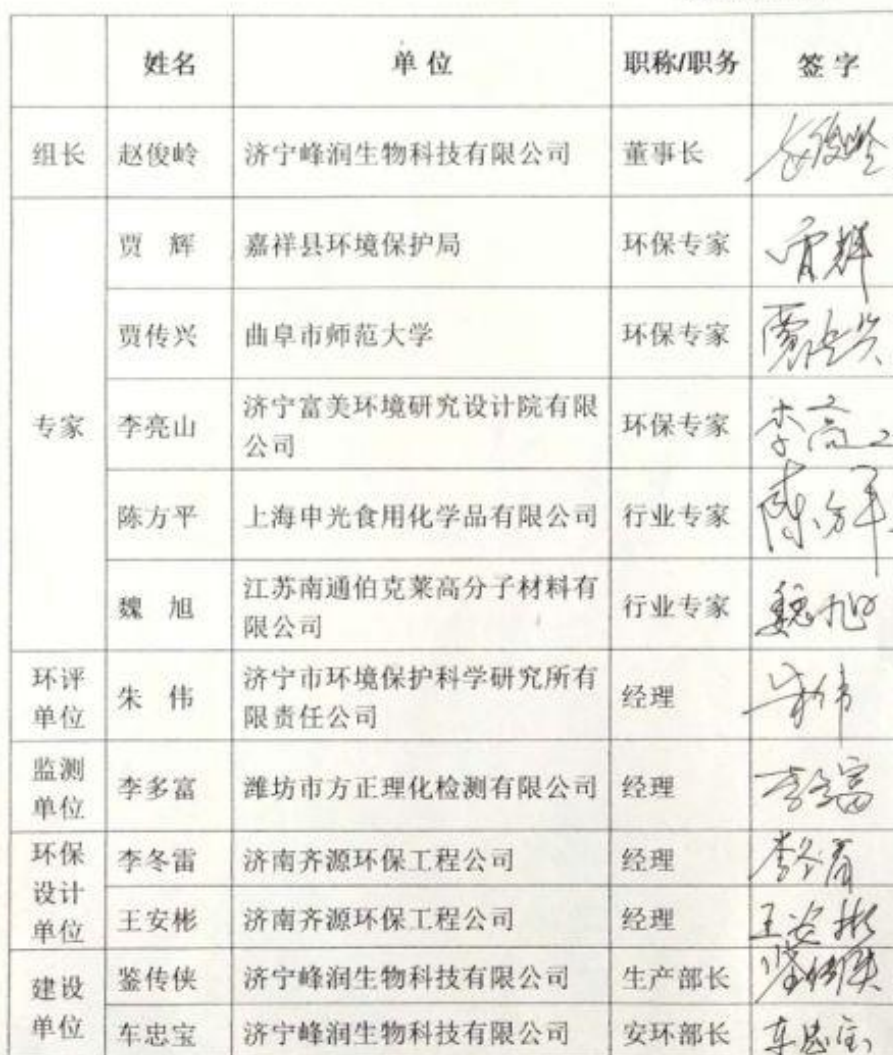 姓名 单位 职称/职务 签字
组长 赵俊岭 济宁峰润生物科技有限公司 董事长 赵俊岭
贾 辉 嘉祥县环境保护局 环保专家 贾辉
贾传兴 曲阜市师范大学 环保专家 贾传兴
专家 李亮山 济宁富美环境研究设计院有限
公司 环保专家 李亮山
陈方平 上海申光食用化学品有限公司 行业专家 陈方平
魏 旭 江苏南通伯克莱高分子材料有
限公司 行业专家 魏旭
环评
单位 朱 伟 济宁市环境保护科学研究所有
限责任公司 经理 朱伟
监测
单位 李多富 潍坊市方正理化检测有限公司 经理 李多富
环保
设计
单位 李冬雷 济南齐源环保工程公司 经理 李冬雷
王安彬 济南齐源环保工程公司 经理 王安彬
建设
单位 鉴传侠 济宁峰润生物科技有限公司 生产部长 鉴传侠
车忠宝 济宁峰润生物科技有限公司 安环部长 车忠宝